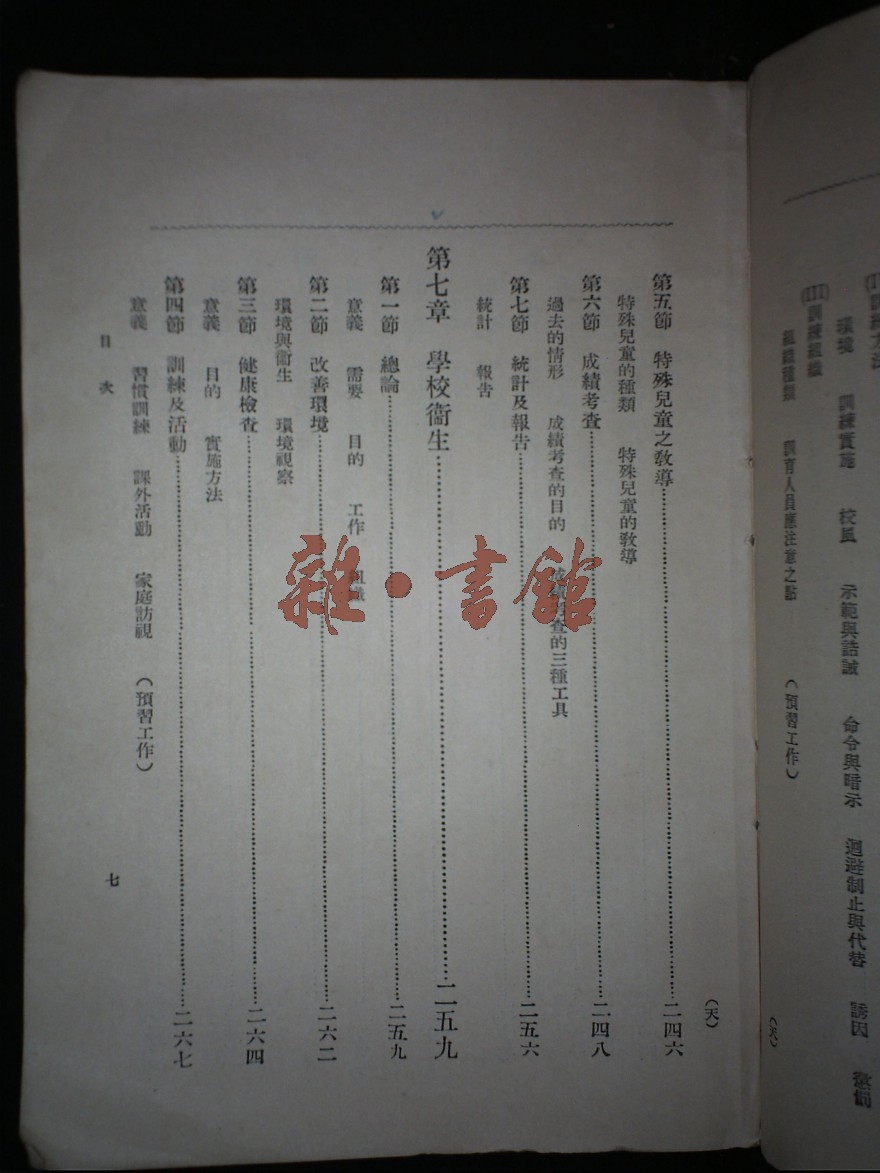 訓練方法
環境　訓練實施　校風　示範與誥誡　命令與暗示　迴避制止與代替　誘因　懲
(III)訓練組織
組織種類　訓育人員應注意之點　（預習工作）
第五節　特殊兒童之敎導……二四六
特殊兒童的種類　特殊兒童的敎導
第六節　成績考查……二四八
過去的情形　成績考查的目的　成績考查的三種工具
第七節　統計及報告……二五六
統計　報告
第七章　學校衞生……二五九
第一節　總論……二五九
意義　需要　目的　工作　組織
第二節　改善環境……二六二
環境與衞生　環境視察
第三節　健康檢查……二六四
意義　目的　實施方法
第四節　訓練及活動……二六七
意義　習慣訓練　課外活動　家庭訪視　（預習工作）
目次
七
雜·書館